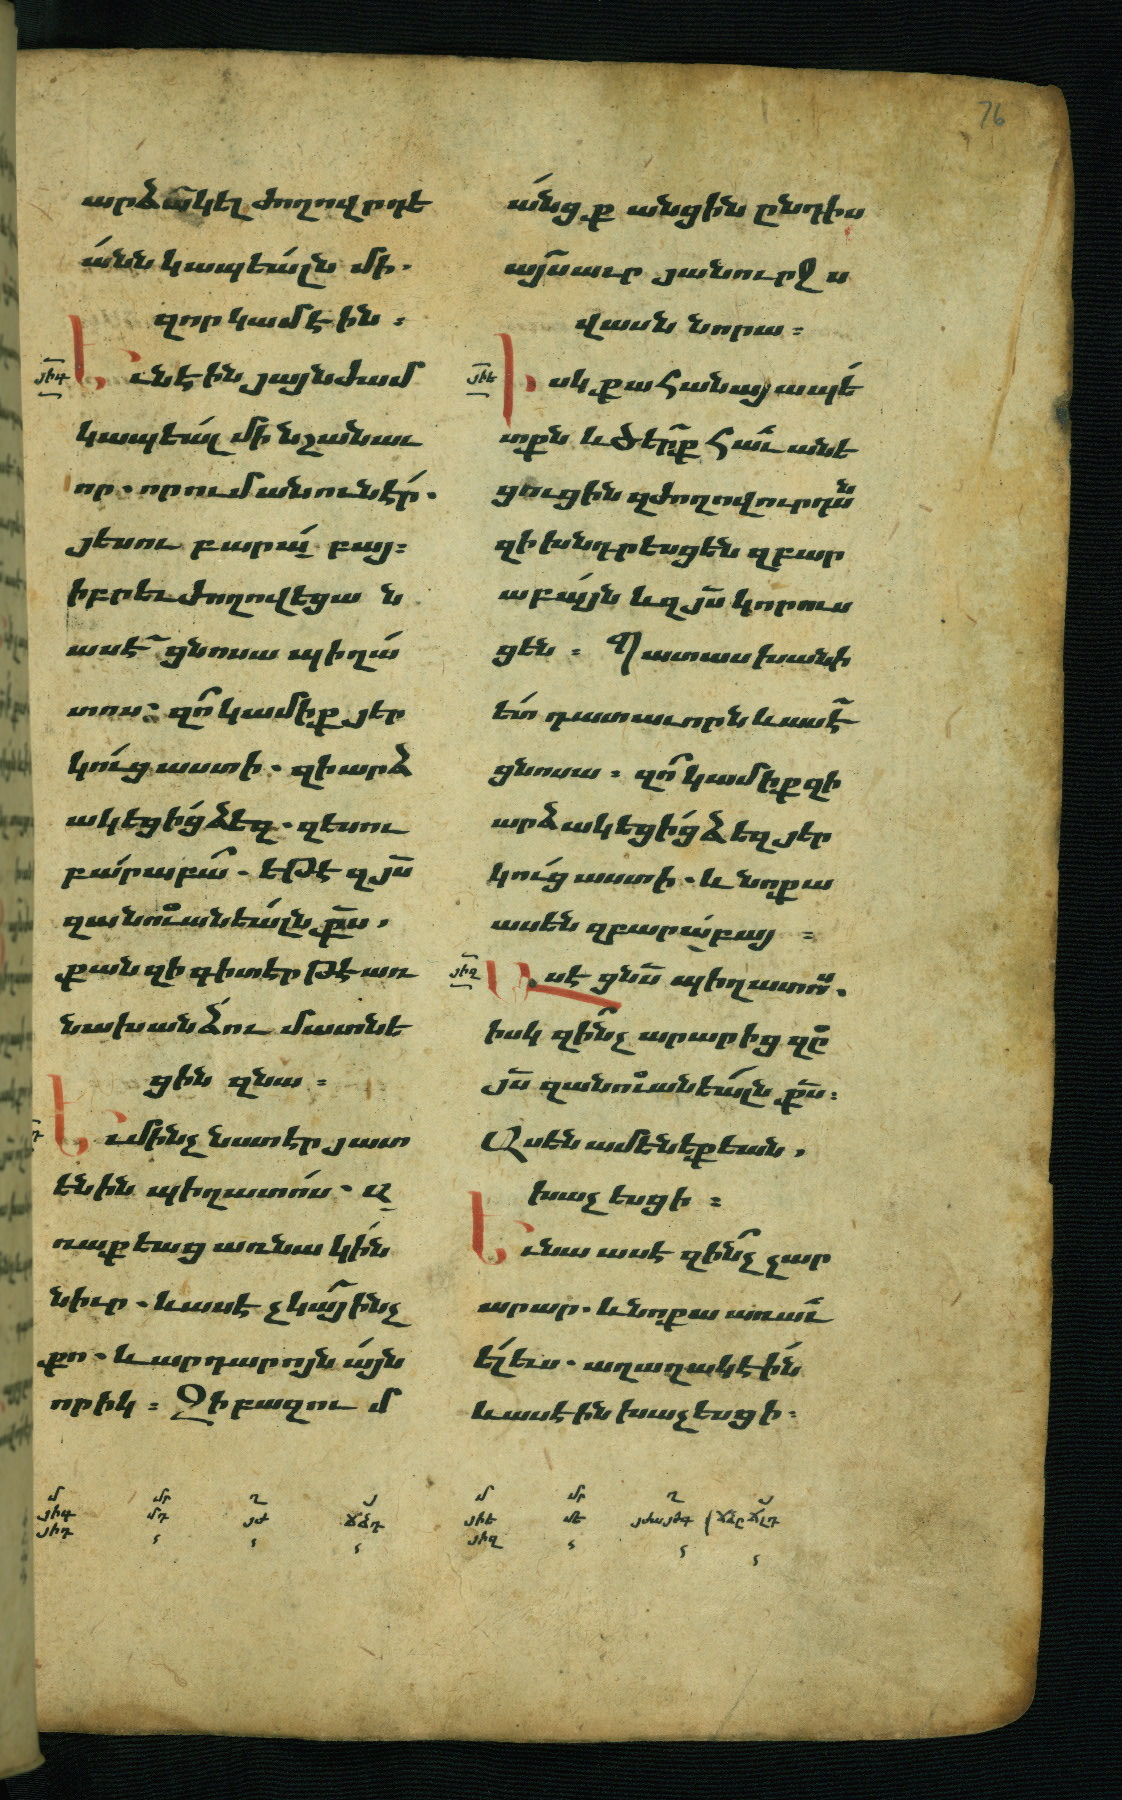 76
արձակել ժողովրդե
անն կապեալն մի.
զոր կամէին :
յիգ
Եւ ունէին յայնժամ
կապեալ մի նշանաւ
որ. որում անուն էր.
յեսու բարաբբայ:
իբրեւ ժողովեցան
ասէ ցնոսա պիղա
տոս: զո՞ կամիք յեր
կուց աստի. զի արձ
ակեցից ձեզ. զեսու
բարաբա՞. եթէ զյս
զանուանեալն քս,
քանզի գիտէր թէ առ
նախանձու մատնե
ցին զնա :
Եւ մինչ նստէր յատ
ենին պիղատոս. ա
ռաքեաց առ նա կին
նիւր. և ասէ չկայ ինչ
քո. և արդարոյն այն
որիկ : Զի բազում
անցք անցին ընդիս
այսաւր յանուրջս
վասն նորա :
յիե
Իսկ քահանայապե
տքն և ծերք հաւանե
ցուցին զժողովուրդսն
զի խնդրեսցեն զբար
աբայն և զյս կորուս
ցեն : Պատասխանի
ետ դատաւորն և ասէ
ցնոսա : զո՞ կամիք զի
արձակեցից ձեզ յեր
կուց աստի. և նոքա
ասեն զբարաբայ :
յիզ
Ասէ ցնս պիղատոս.
իսկ զինչ արարից զը
յս զանուանեալն քս:
Ասեն ամենեքեան,
խաչ եսցի :
Եւ նա ասէ զինչ չար
արար. և նոքա առաւ
ել ևս. աղաղակէին
և ասէին խաչ եսցի:
մ մր ղ յ մ մր ղ յ
յիգ մդ յժ յիե մե
յիդ յիզ